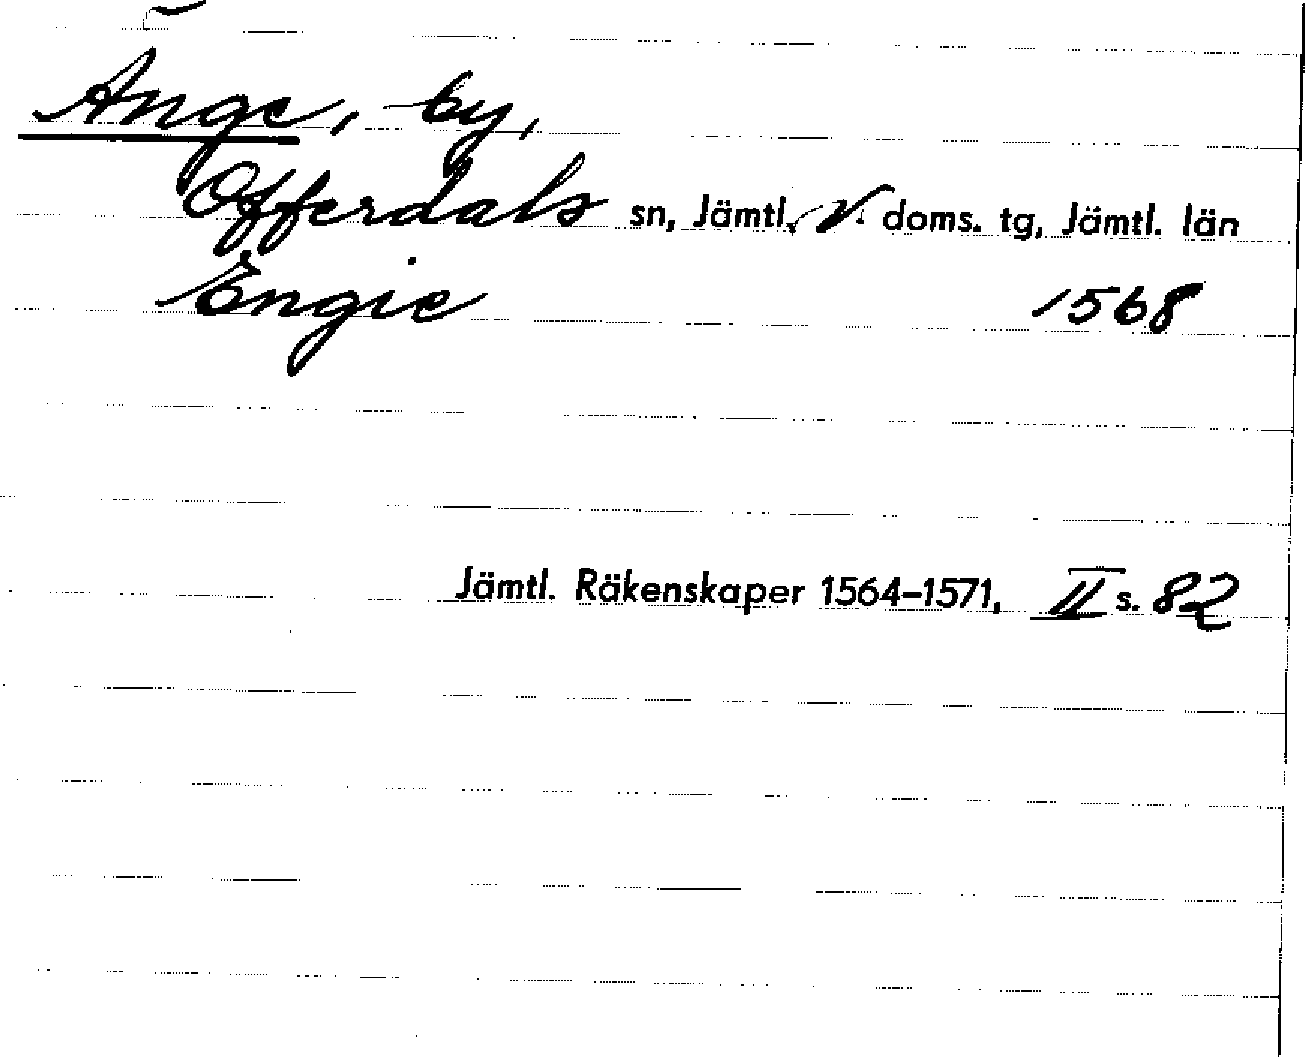 Ånge, by,
Offerdals sn, Jämtl. V doms. tg, Jämtl. län
Engie 1568
Jämtl. Räkenskaper 1564–1571, II s. 82